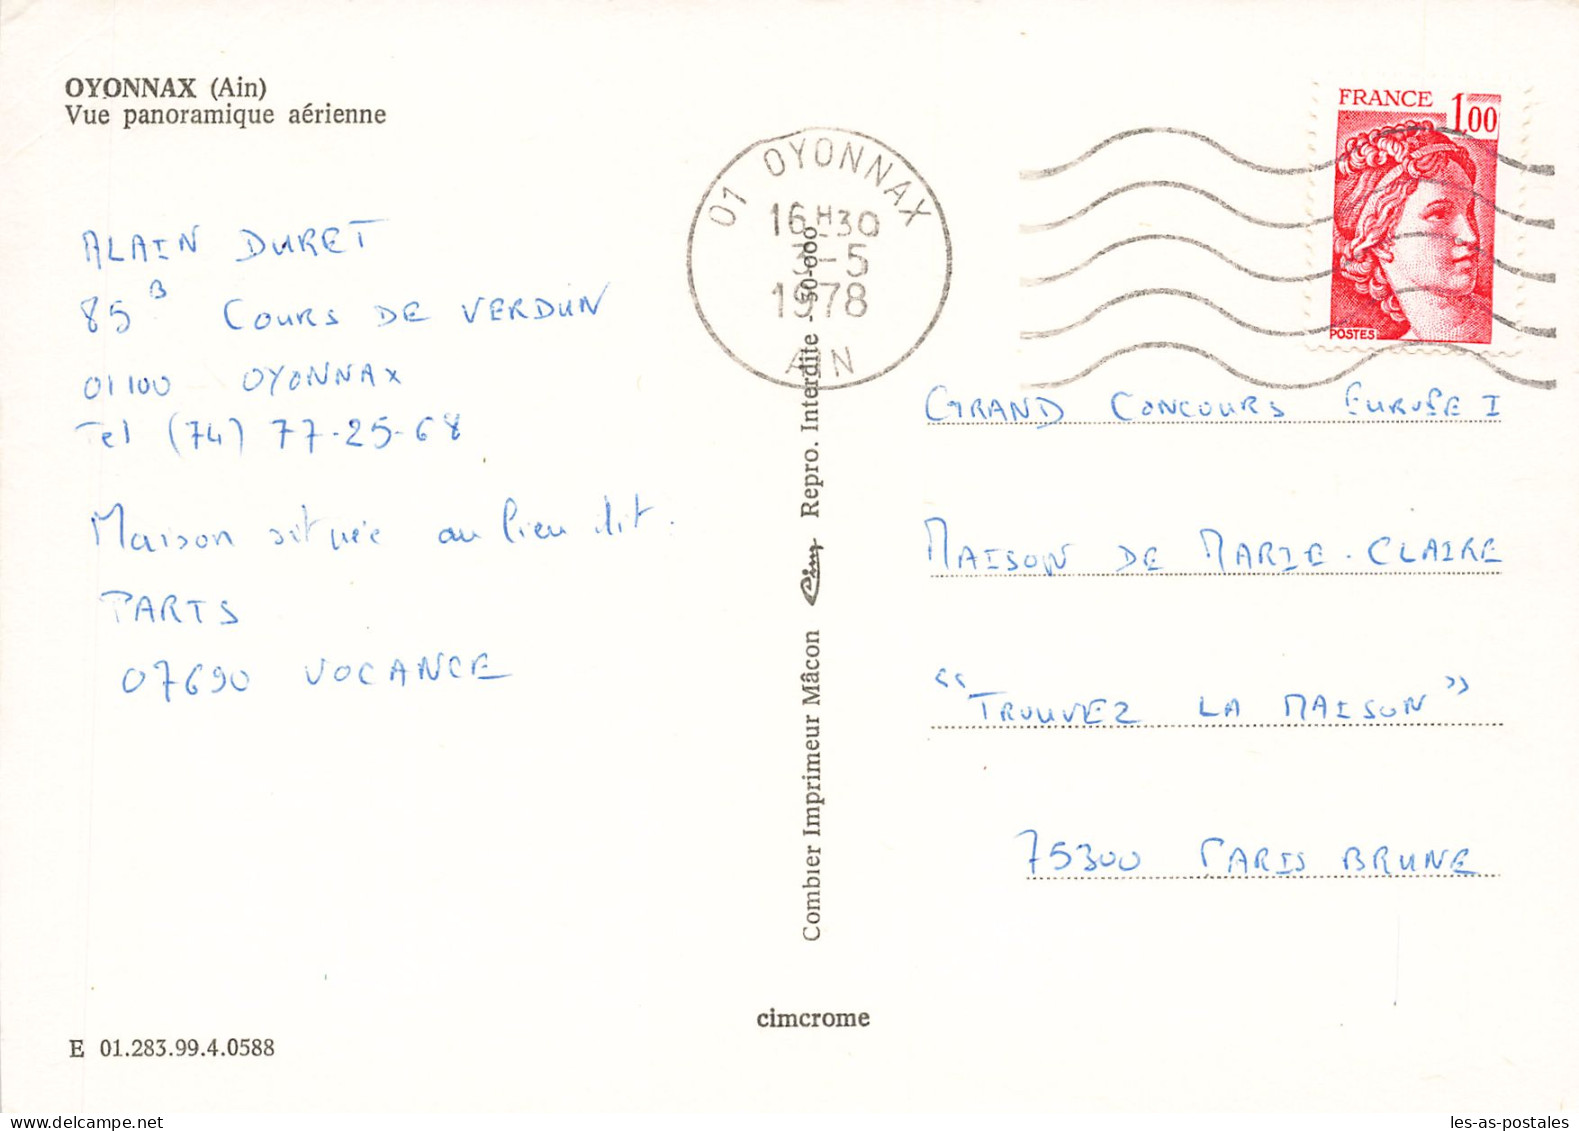 OYONNAX (Ain)
Vue panoramique aérienne
ALAIN DURET
85 B COURS DE VERDUN
01100 OYONNAX
Tel (74) 77-25-68
Maison située au lieu dit.
PARTS
07690 VOCANCE
E 01.283.99.4.0588
01 OYONNAX
16H30
3-5
1978
AIN
Combier Imprimeur Mâcon Cim Repro. Interdite - 50-000
cimcrome
FRANCE 1,00
POSTES
GRAND CONCOURS EUROPE I
MAISON DE MARIE-CLAIRE
"TROUVEZ LA MAISON"
75300 PARIS BRUNE
les-as-postales